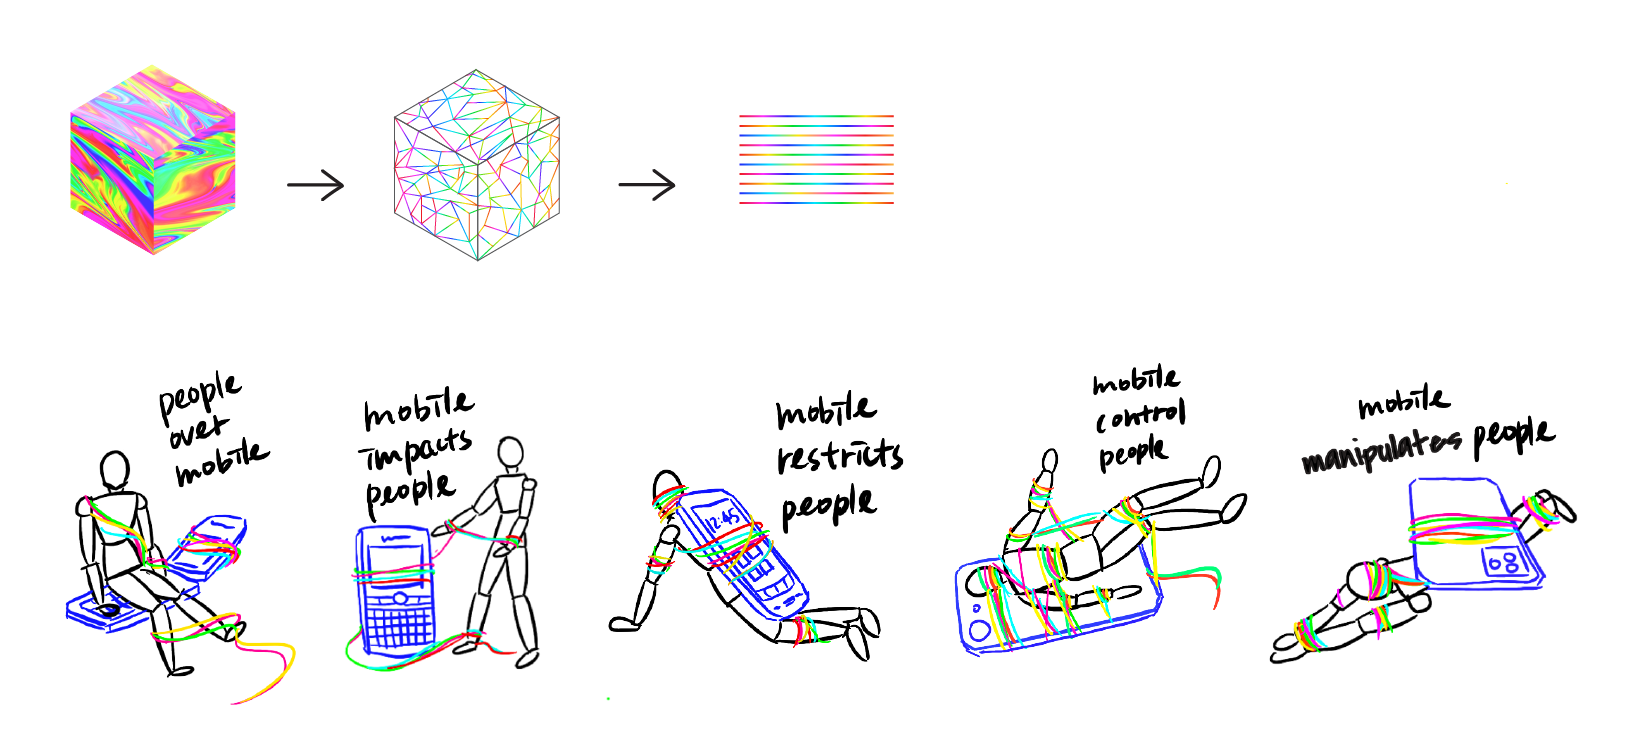 people
over
mobile
mobile
impacts
people
mobile
restricts
people
12:45
mobile
control
people
mobile
manipulates people